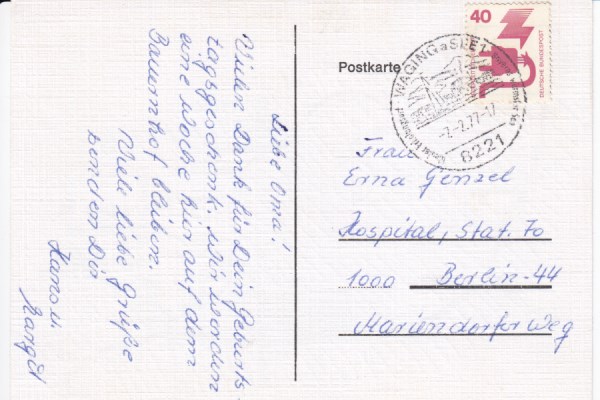 Liebe Oma!
Vielen Dank für Dein Geburts-
tagsgeschenk. Wir werden
eine Woche hier auf dem
Bauernhof bleiben.
Viele liebe Grüße
senden Dir
Hans u.
Margit
Postkarte
40
DEUTSCHE BUNDESPOST
WAGING a SEE 1
-7.2.77-17
8221
Frau
Erna Genzel
Hospital, Stat. 70
1000 Berlin-44
Mariendorfer Weg